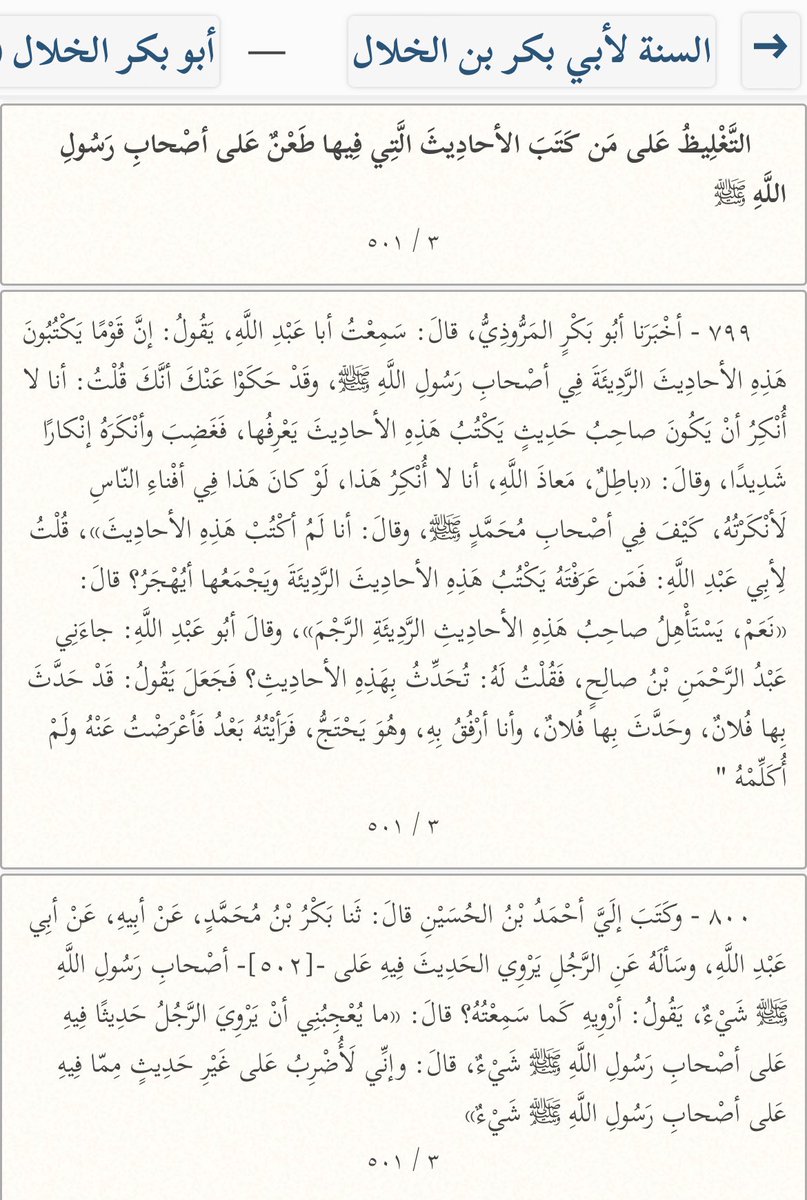 السنة لأبي بكر بن الخلال — أبو بكر الخلال
التَّغْلِيظُ عَلى مَن كَتَبَ الأحادِيثَ الَّتِي فِيها طَعْنٌ عَلى أصْحابِ رَسُولِ
اللَّهِ ﷺ
٣ / ٥٠١
٧٩٩ - أخْبَرَنا أبُو بَكْرٍ المَرُّوذِيُّ، قالَ: سَمِعْتُ أبا عَبْدِ اللَّهِ، يَقُولُ: إنَّ قَوْمًا يَكْتُبُونَ
هَذِهِ الأحادِيثَ الرَّدِيئَةَ فِي أصْحابِ رَسُولِ اللَّهِ ﷺ، وقَدْ حَكَوْا عَنْكَ أنَّكَ قُلْتُ: أنا لا
أُنْكِرُ أنْ يَكُونَ صاحِبُ حَدِيثٍ يَكْتُبُ هَذِهِ الأحادِيثَ يَعْرِفُها، فَغَضِبَ وأنْكَرَهُ إنْكارًا
شَدِيدًا، وقالَ: «باطِلٌ، مَعاذَ اللَّهِ، أنا لا أُنْكِرُ هَذا، لَوْ كانَ هَذا فِي أفْناءِ النّاسِ
لَأنْكَرْتُهُ، كَيْفَ فِي أصْحابِ مُحَمَّدٍ ﷺ، وقالَ: أنا لَمْ أكْتُبْ هَذِهِ الأحادِيثَ»، قُلْتُ
لِأبِي عَبْدِ اللَّهِ: فَمَن عَرَفْتَهُ يَكْتُبُ هَذِهِ الأحادِيثَ الرَّدِيئَةَ ويَجْمَعُها أيُهْجَرُ؟ قالَ:
«نَعَمْ، يَسْتَأْهِلُ صاحِبُ هَذِهِ الأحادِيثِ الرَّدِيئَةِ الرَّجْمَ»، وقالَ أبُو عَبْدِ اللَّهِ: جاءَنِي
عَبْدُ الرَّحْمَنِ بْنُ صالِحٍ، فَقُلْتُ لَهُ: تُحَدِّثُ بِهَذِهِ الأحادِيثِ؟ فَجَعَلَ يَقُولُ: قَدْ حَدَّثَ
بِها فُلانٌ، وحَدَّثَ بِها فُلانٌ، وأنا أرْفُقُ بِهِ، وهُوَ يَحْتَجُّ، فَرَأيْتُهُ بَعْدُ فَأعْرَضْتُ عَنْهُ ولَمْ
أُكَلِّمْهُ "
٣ / ٥٠١
٨٠٠ - وكَتَبَ إلَيَّ أحْمَدُ بْنُ الحُسَيْنِ قالَ: ثَنا بَكْرُ بْنُ مُحَمَّدٍ، عَنْ أبِيهِ، عَنْ أبِي
عَبْدِ اللَّهِ، وسَألَهُ عَنِ الرَّجُلِ يَرْوِي الحَدِيثَ فِيهِ عَلى -[٥٠٢]- أصْحابِ رَسُولِ اللَّهِ
ﷺ شَيْءٌ، يَقُولُ: أرْوِيهِ كَما سَمِعْتُهُ؟ قالَ: «ما يُعْجِبُنِي أنْ يَرْوِيَ الرَّجُلُ حَدِيثًا فِيهِ
عَلى أصْحابِ رَسُولِ اللَّهِ ﷺ شَيْءٌ، قالَ: وإنِّي لَأُضْرِبُ عَلى غَيْرِ حَدِيثٍ مِمّا فِيهِ
عَلى أصْحابِ رَسُولِ اللَّهِ ﷺ شَيْءٌ»
٣ / ٥٠١